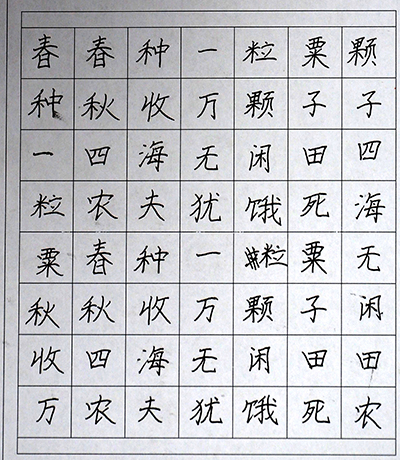 春春种一粒粟颗
种秋收万颗子子
一四海无闲田四
粒农夫犹饿死海
粟春种一粒粟无
秋秋收万颗子闲
收四海无闲田田
万农夫犹饿死农